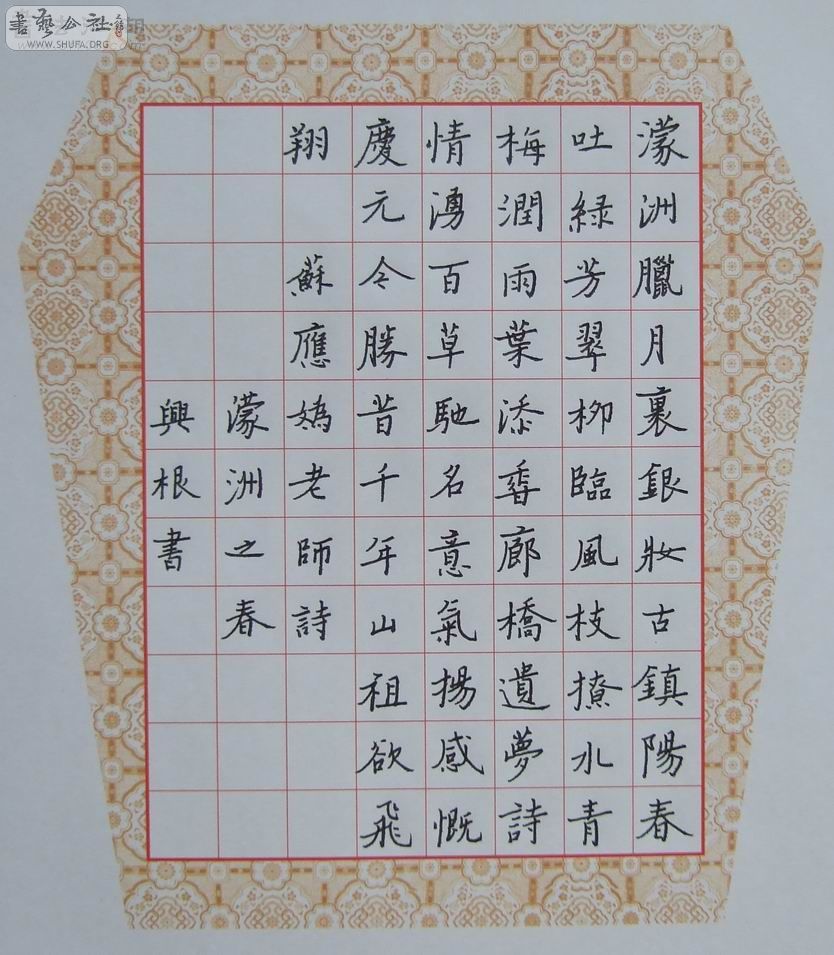 濛洲臘月裏銀妝古鎮陽春
吐緑芳翠柳臨風枝撩水青
梅潤雨葉添香廊橋遺夢詩
情湧百草馳名意氣揚感慨
慶元令勝昔千年山祖欲飛
翔 蘇應嬀老師詩
濛洲之春
興根書
書藝公社
WWW.SHUFA.ORG